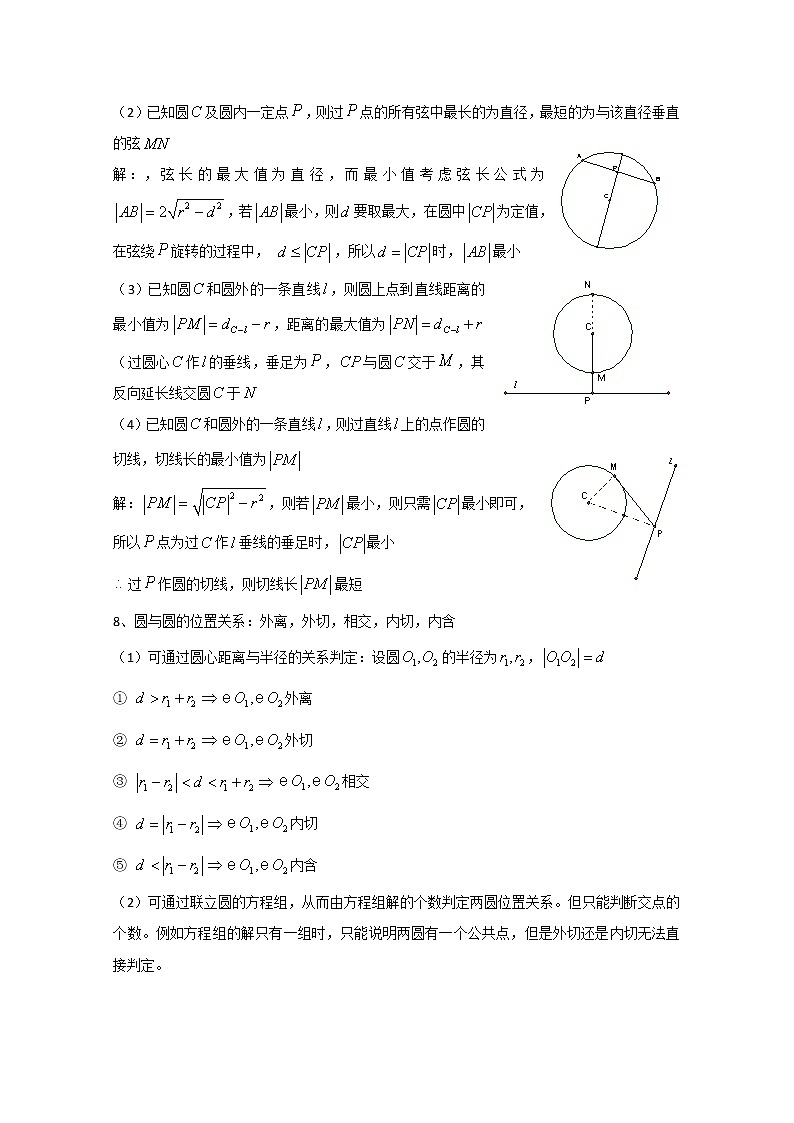 （2）已知圆C及圆内一定点P,则过P点的所有弦中最长的为直径,最短的为与该直径垂直
的弦MN
解：,弦长的最大值为直径,而最小值考虑弦长公式为
|AB| = 2√(r² − d²),若|AB|最小,则d要取最大,在圆中|CP|为定值,
在弦绕P旋转的过程中， d ≤ |CP|,所以d = |CP|时,|AB|最小
A
P
B
C
（3）已知圆C和圆外的一条直线l,则圆上点到直线距离的
最小值为|PM| = d_{C−l} − r,距离的最大值为|PN| = d_{C−l} + r
（过圆心C作l的垂线,垂足为P,CP与圆C交于M,其
反向延长线交圆C于N
N
C
M
l
P
（4）已知圆C和圆外的一条直线l,则过直线l上的点作圆的
切线,切线长的最小值为|PM|
解：|PM| = √(|CP|² − r²),则若|PM|最小,则只需|CP|最小即可,
所以P点为过C作l垂线的垂足时,|CP|最小
∴ 过P作圆的切线,则切线长|PM|最短
M
l
C
P
8、圆与圆的位置关系：外离,外切,相交,内切,内含
（1）可通过圆心距离与半径的关系判定：设圆O₁,O₂的半径为r₁,r₂,|O₁O₂| = d
① d > r₁ + r₂ ⇒ e O₁,e O₂外离
② d = r₁ + r₂ ⇒ e O₁,e O₂外切
③ |r₁ − r₂| < d < r₁ + r₂ ⇒ e O₁,e O₂相交
④ d = |r₁ − r₂| ⇒ e O₁,e O₂内切
⑤ d < |r₁ − r₂| ⇒ e O₁,e O₂内含
（2）可通过联立圆的方程组,从而由方程组解的个数判定两圆位置关系。但只能判断交点的
个数。例如方程组的解只有一组时,只能说明两圆有一个公共点,但是外切还是内切无法直
接判定。